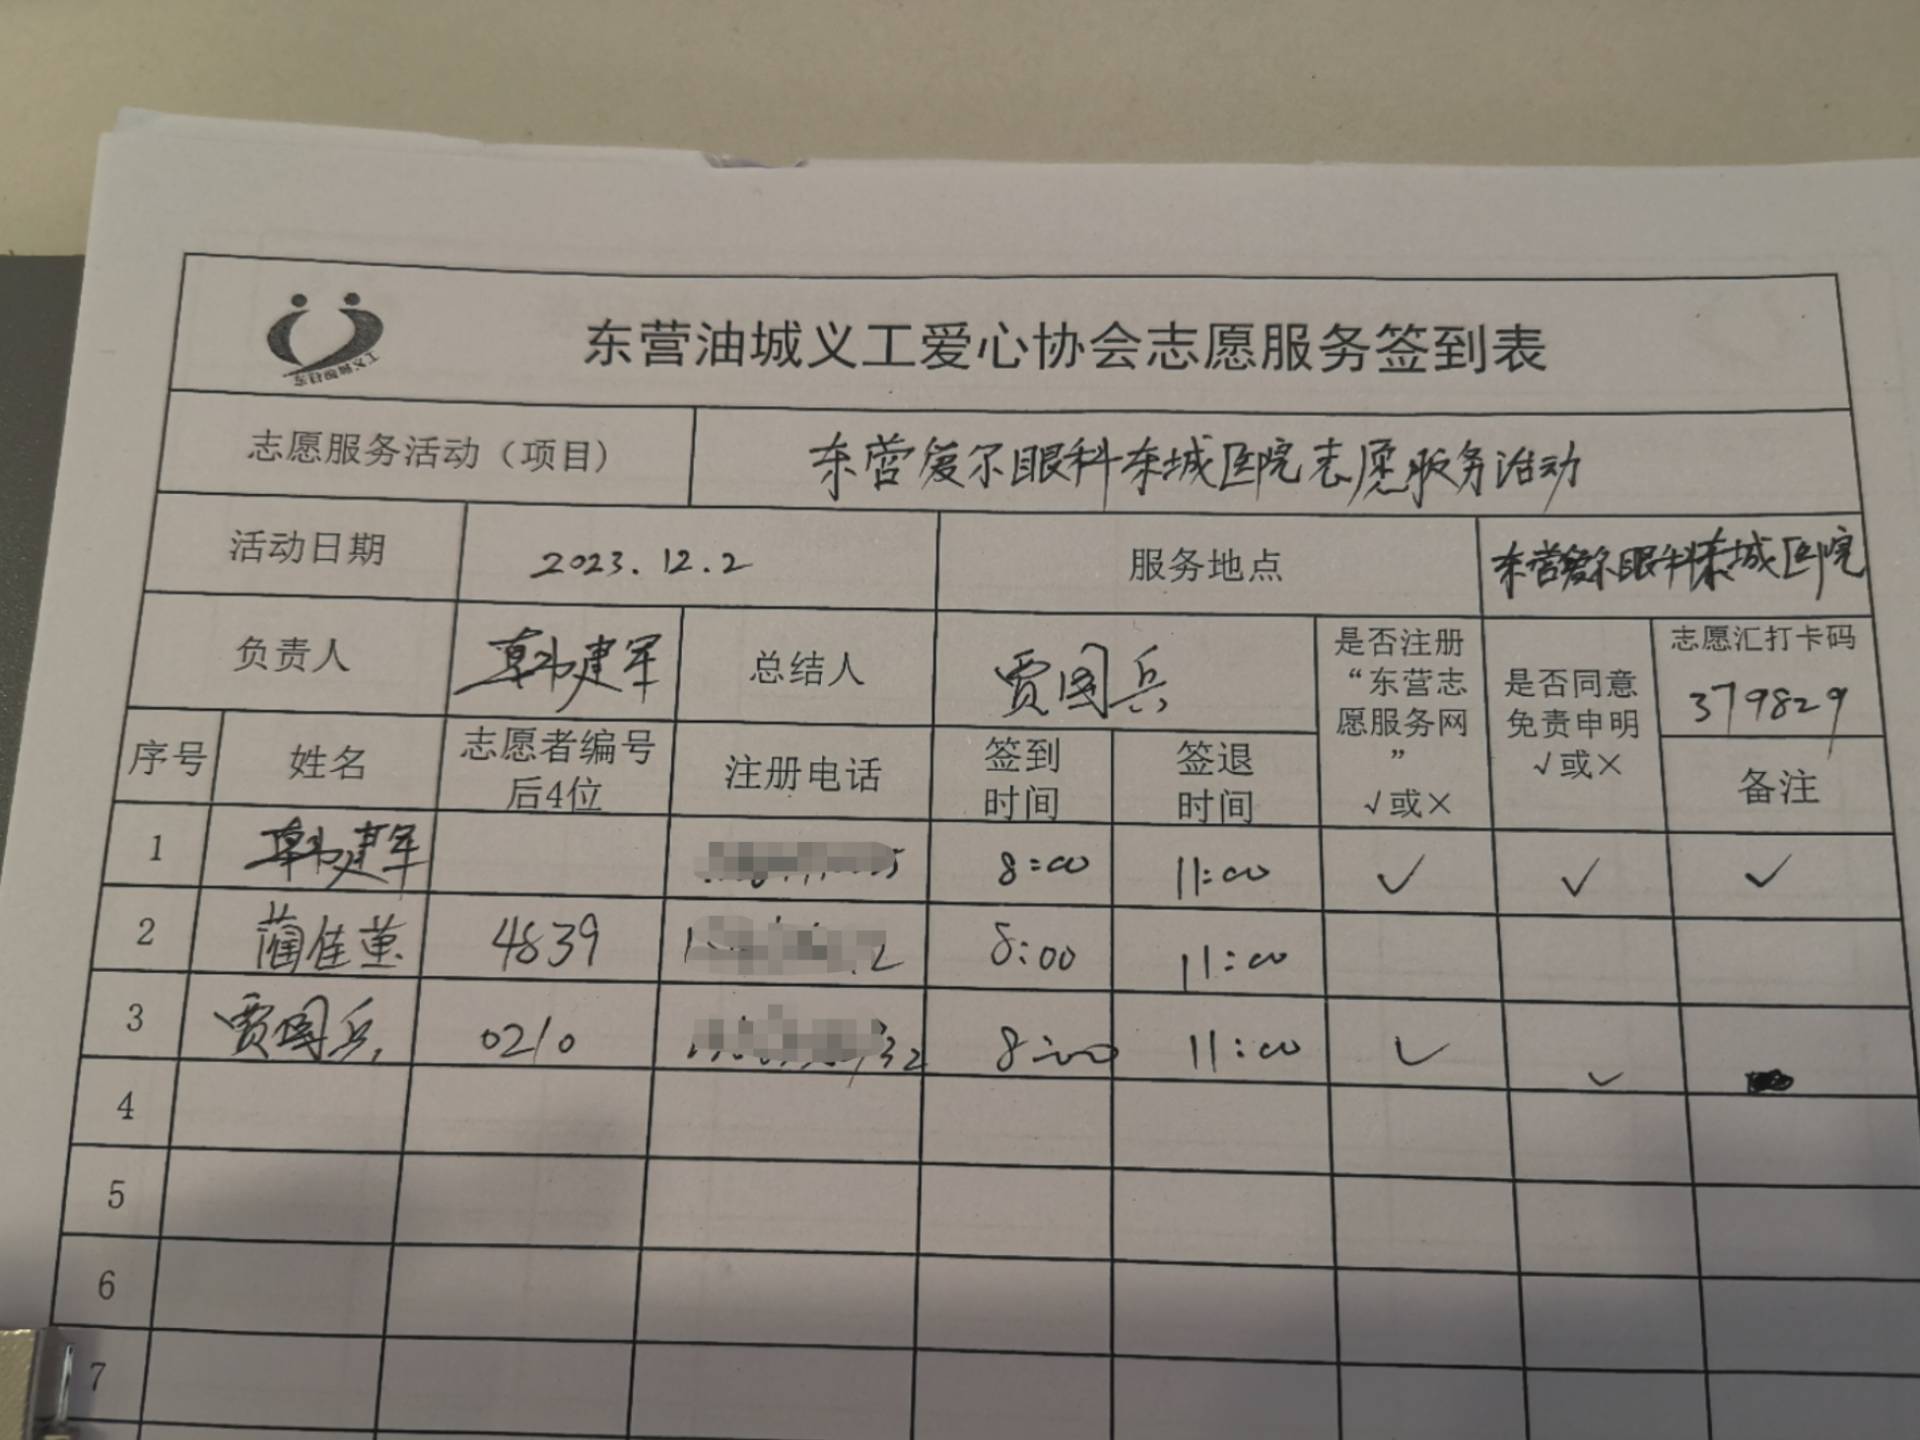 东营油城义工爱心协会志愿服务签到表
志愿服务活动（项目） 东营爱尔眼科东城医院志愿服务活动
活动日期 2023.12.2 服务地点 东营爱尔眼科东城医院
负责人 韩建军 总结人 贾国兵 是否注册“东营志愿服务网” √或× 是否同意免责申明 √或× 志愿汇打卡码 379829
序号 姓名 志愿者编号后4位 注册电话 签到时间 签退时间 备注
1 韩建军 8:00 11:00 ✓ ✓ ✓
2 蔺佳 4839 8:00 11:00
3 贾国兵 0210 8:00 11:00 ✓ ✓
4
5
6
7